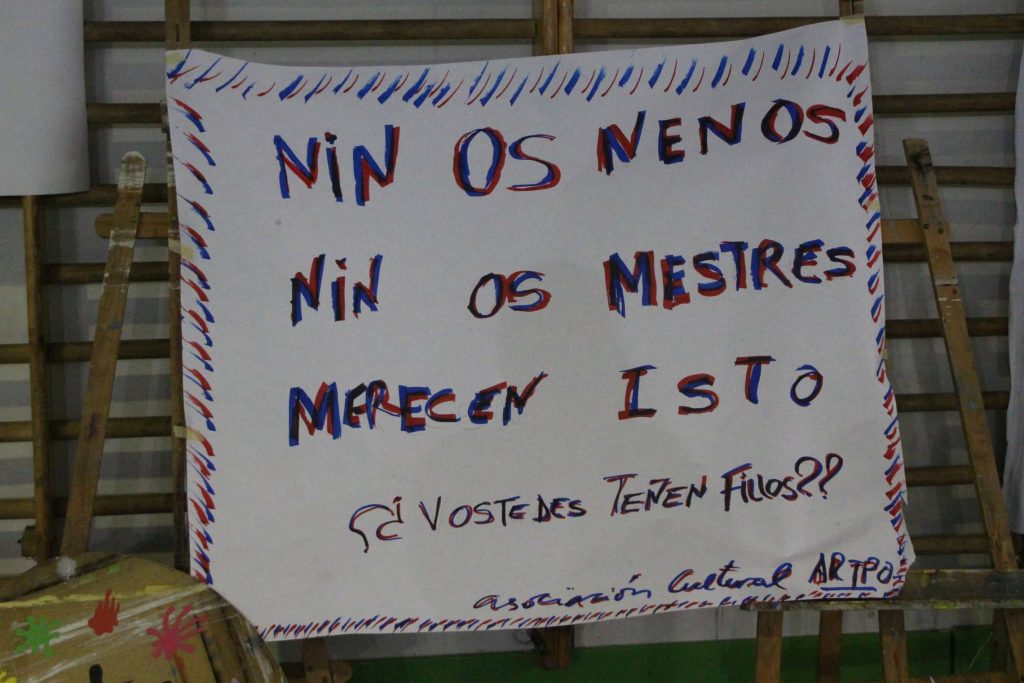 NiN OS NENOS
NiN OS MESTRES
MERECEN ISTO
¿¿ VOSTEDES TEÑEN FILLOS??
asociación Cultural ARTPO